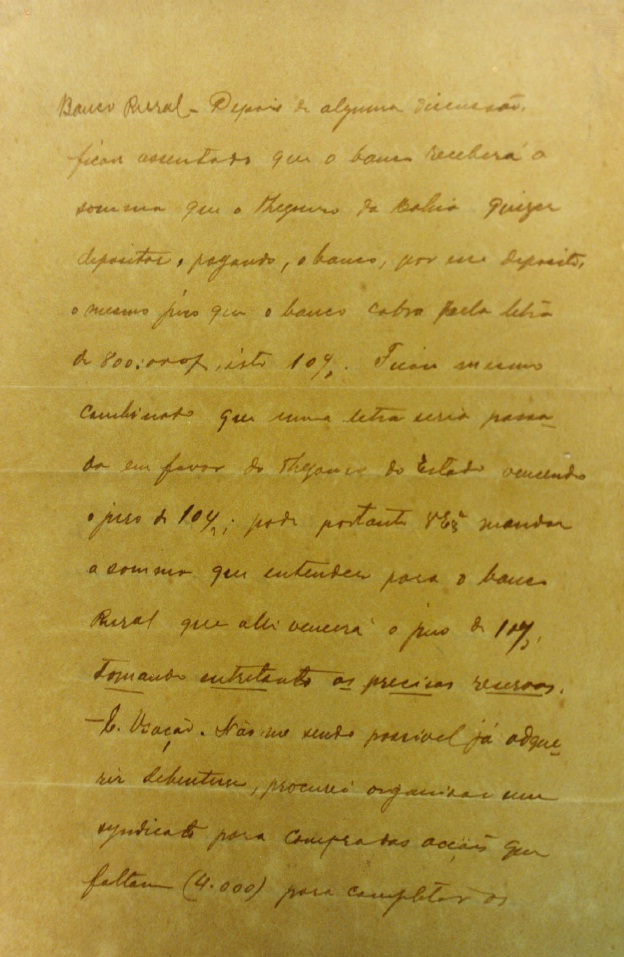 Banco Rural – Depois de alguma discussão,
ficou assentado que o banco receberá a
somma que o Thesouro da Bahia quizer
depositar, pagando, o banco, por esse deposito,
o mesmo juro que o banco cobra pela letra
de 800:000$, isto 10%. Ficou mesmo
combinado que uma letra seria passa-
da em favor do Thesouro do Estado vencendo
o juro de 10%; pode portanto VExª mandar
a somma que entender para o banco
Rural que alli vencerá o juro de 10%,
tomando entretanto as precisas reservas.
– E. Viação. Não me sendo possivel já adque-
rir debenture, procurei organisar um
syndicato para compra das acções que
faltam (4.000) para completar os